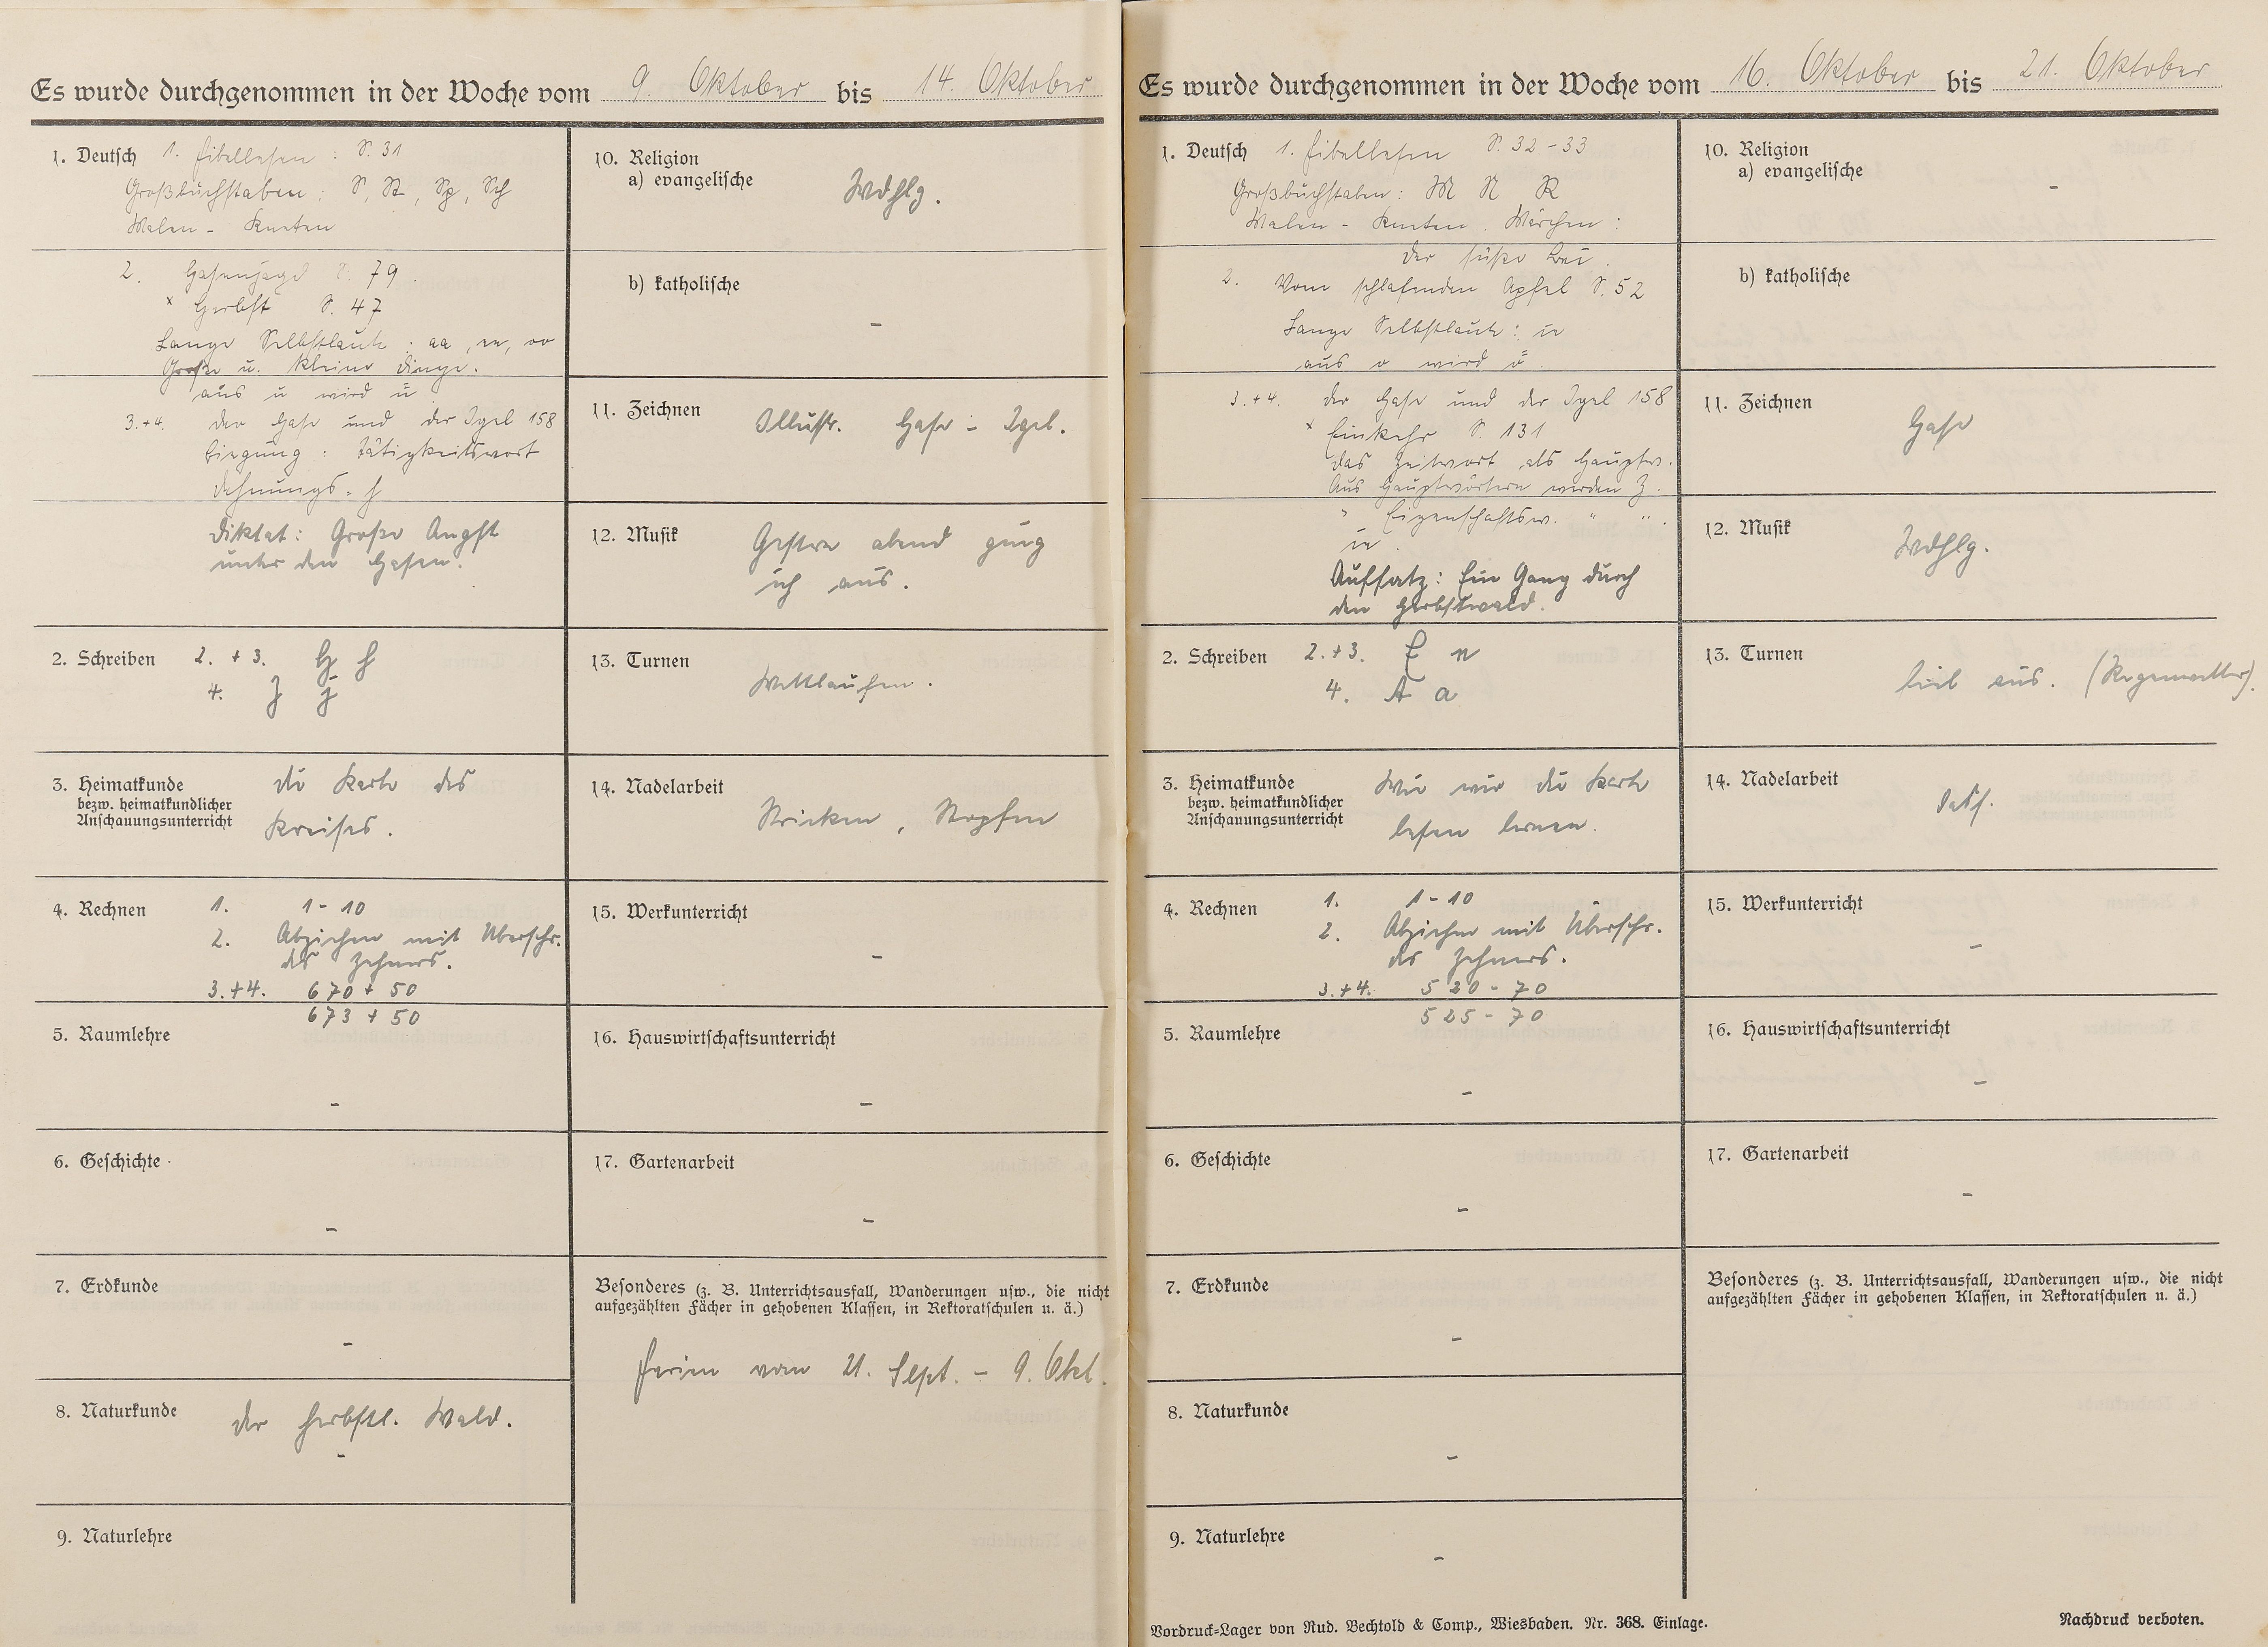 Es wurde durchgenommen in der Woche vom 9. Oktober bis 14. Oktober
1. Deutsch 1. Fibellesen : S. 31
Großbuchstaben : S, St, Sp, Sch
Malen - Kneten
2. Hasenjagd S. 79
x Herbst S. 47
Lange Selbstlaute : aa, ee, oo
Große u. kleine Dinge.
aus u wird ü
3.+4. Der Hase und der Igel 158
Biegung : Tätigkeitswort
Dehnungs-h
Diktat: Große Angst
unter den Hasen.
2. Schreiben 2. + 3. H h
4. J j
3. Heimatkunde
bezw. heimatkundlicher
Anschauungsunterricht
Die Karte des
Kreises.
4. Rechnen 1. 1-10
2. Abziehen mit Überschr.
des Zehners.
3.+4. 670 + 50
673 + 50
5. Raumlehre
-
6. Geschichte
-
7. Erdkunde
-
8. Naturkunde Der herbstl. Wald.
-
9. Naturlehre
10. Religion
a) evangelische Wdhlg.
b) katholische
-
11. Zeichnen Illustr. Hase - Igel.
12. Musik Gestern abend ging
ich aus.
13. Turnen Wettlaufen.
14. Nadelarbeit
Stricken, Stopfen
15. Werkunterricht
-
16. Hauswirtschaftsunterricht
-
17. Gartenarbeit
-
Besonderes (z. B. Unterrichtsausfall, Wanderungen usw., die nicht
aufgezählten Fächer in gehobenen Klassen, in Rektoratschulen u. ä.)
Ferien vom 21. Sept. - 9. Okt.
Es wurde durchgenommen in der Woche vom 16. Oktober bis 21. Oktober
1. Deutsch 1. Fibellesen S. 32-33
Großbuchstaben : M N R
Malen - Kneten. Märchen :
Der süße Brei.
2. Vom schlafenden Apfel S. 52
Lange Selbstlaute : ie
aus o wird ö.
3.+4. Der Hase und der Igel 158
x Einkehr S. 131
Das Zeitwort als Hauptw.
Aus Hauptwörtern werden Z.
" Eigenschaftsw. " "
ie.
Aufsatz : Ein Gang durch
den Herbstwald.
2. Schreiben 2.+3. E e
4. A a
3. Heimatkunde
bezw. heimatkundlicher
Anschauungsunterricht
Wie wir die Karte
lesen lernen.
4. Rechnen 1. 1-10
2. Abziehen mit Überschr.
des Zehners.
3.+4. 520 - 70
525 - 70
5. Raumlehre
-
6. Geschichte
-
7. Erdkunde
-
8. Naturkunde
-
9. Naturlehre
-
10. Religion
a) evangelische
-
b) katholische
11. Zeichnen
Hase
12. Musik
Wdhlg.
13. Turnen
fiel aus. (Regenwetter).
14. Nadelarbeit
Dass.
15. Werkunterricht
-
16. Hauswirtschaftsunterricht
-
17. Gartenarbeit
-
Besonderes (z. B. Unterrichtsausfall, Wanderungen usw., die nicht
aufgezählten Fächer in gehobenen Klassen, in Rektoratschulen u. ä.)
Vordruck-Lager von Rud. Bechtold & Comp., Wiesbaden. Nr. 368. Einlage.
Nachdruck verboten.